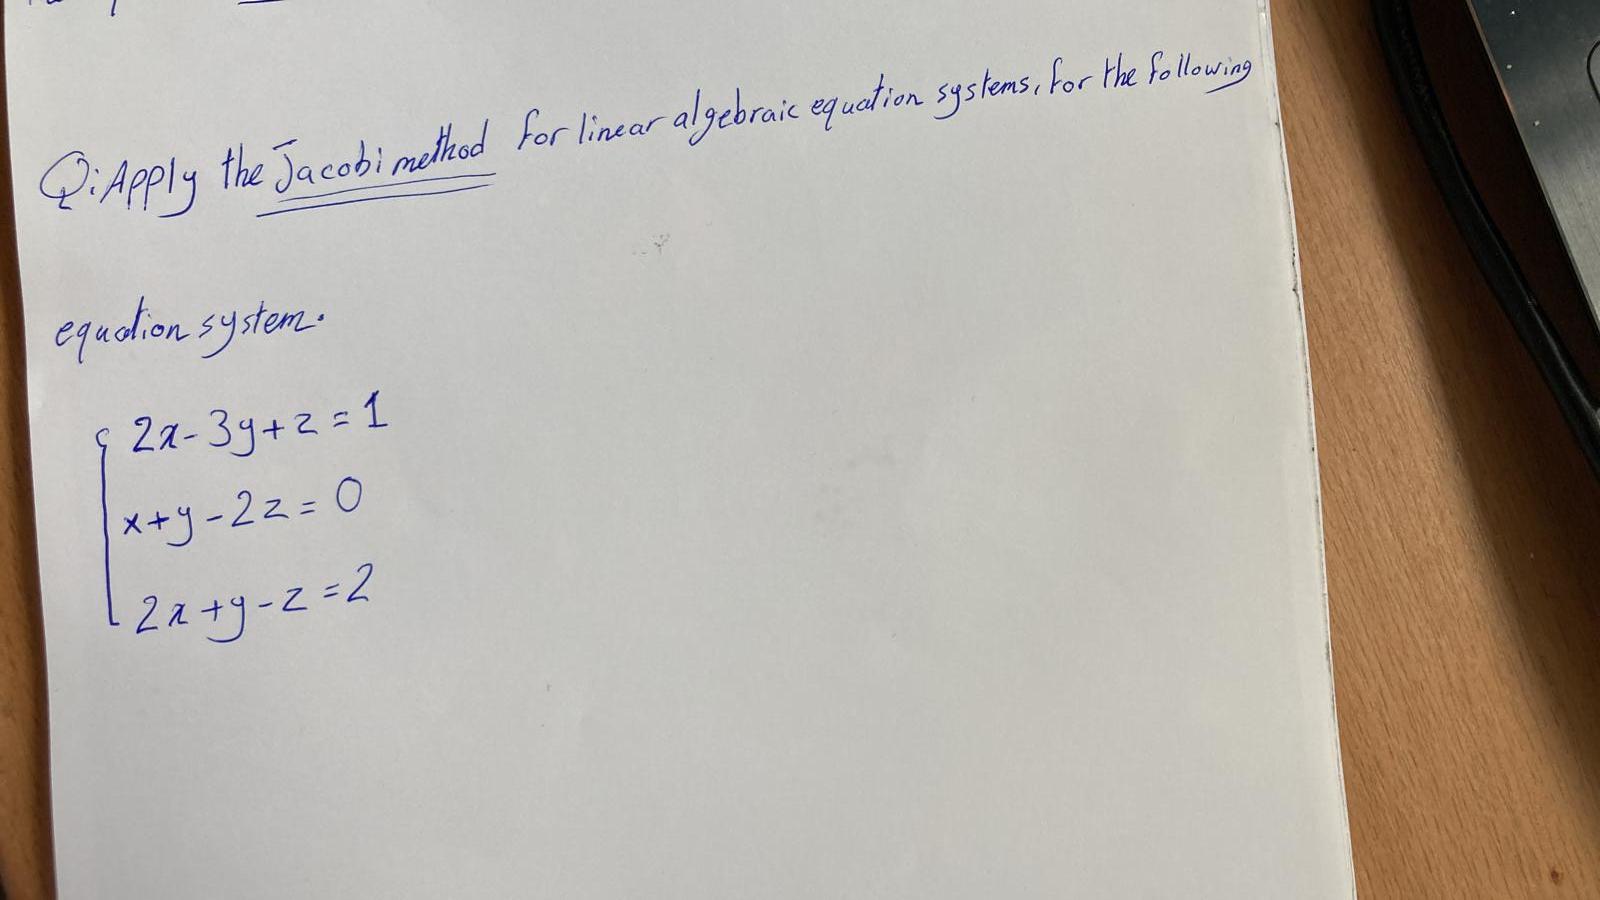 Q: Apply the Jacobi method for linear algebraic equation systems, for the following
equation system.
2x - 3y + z = 1
x + y - 2z = 0
2x + y - z = 2